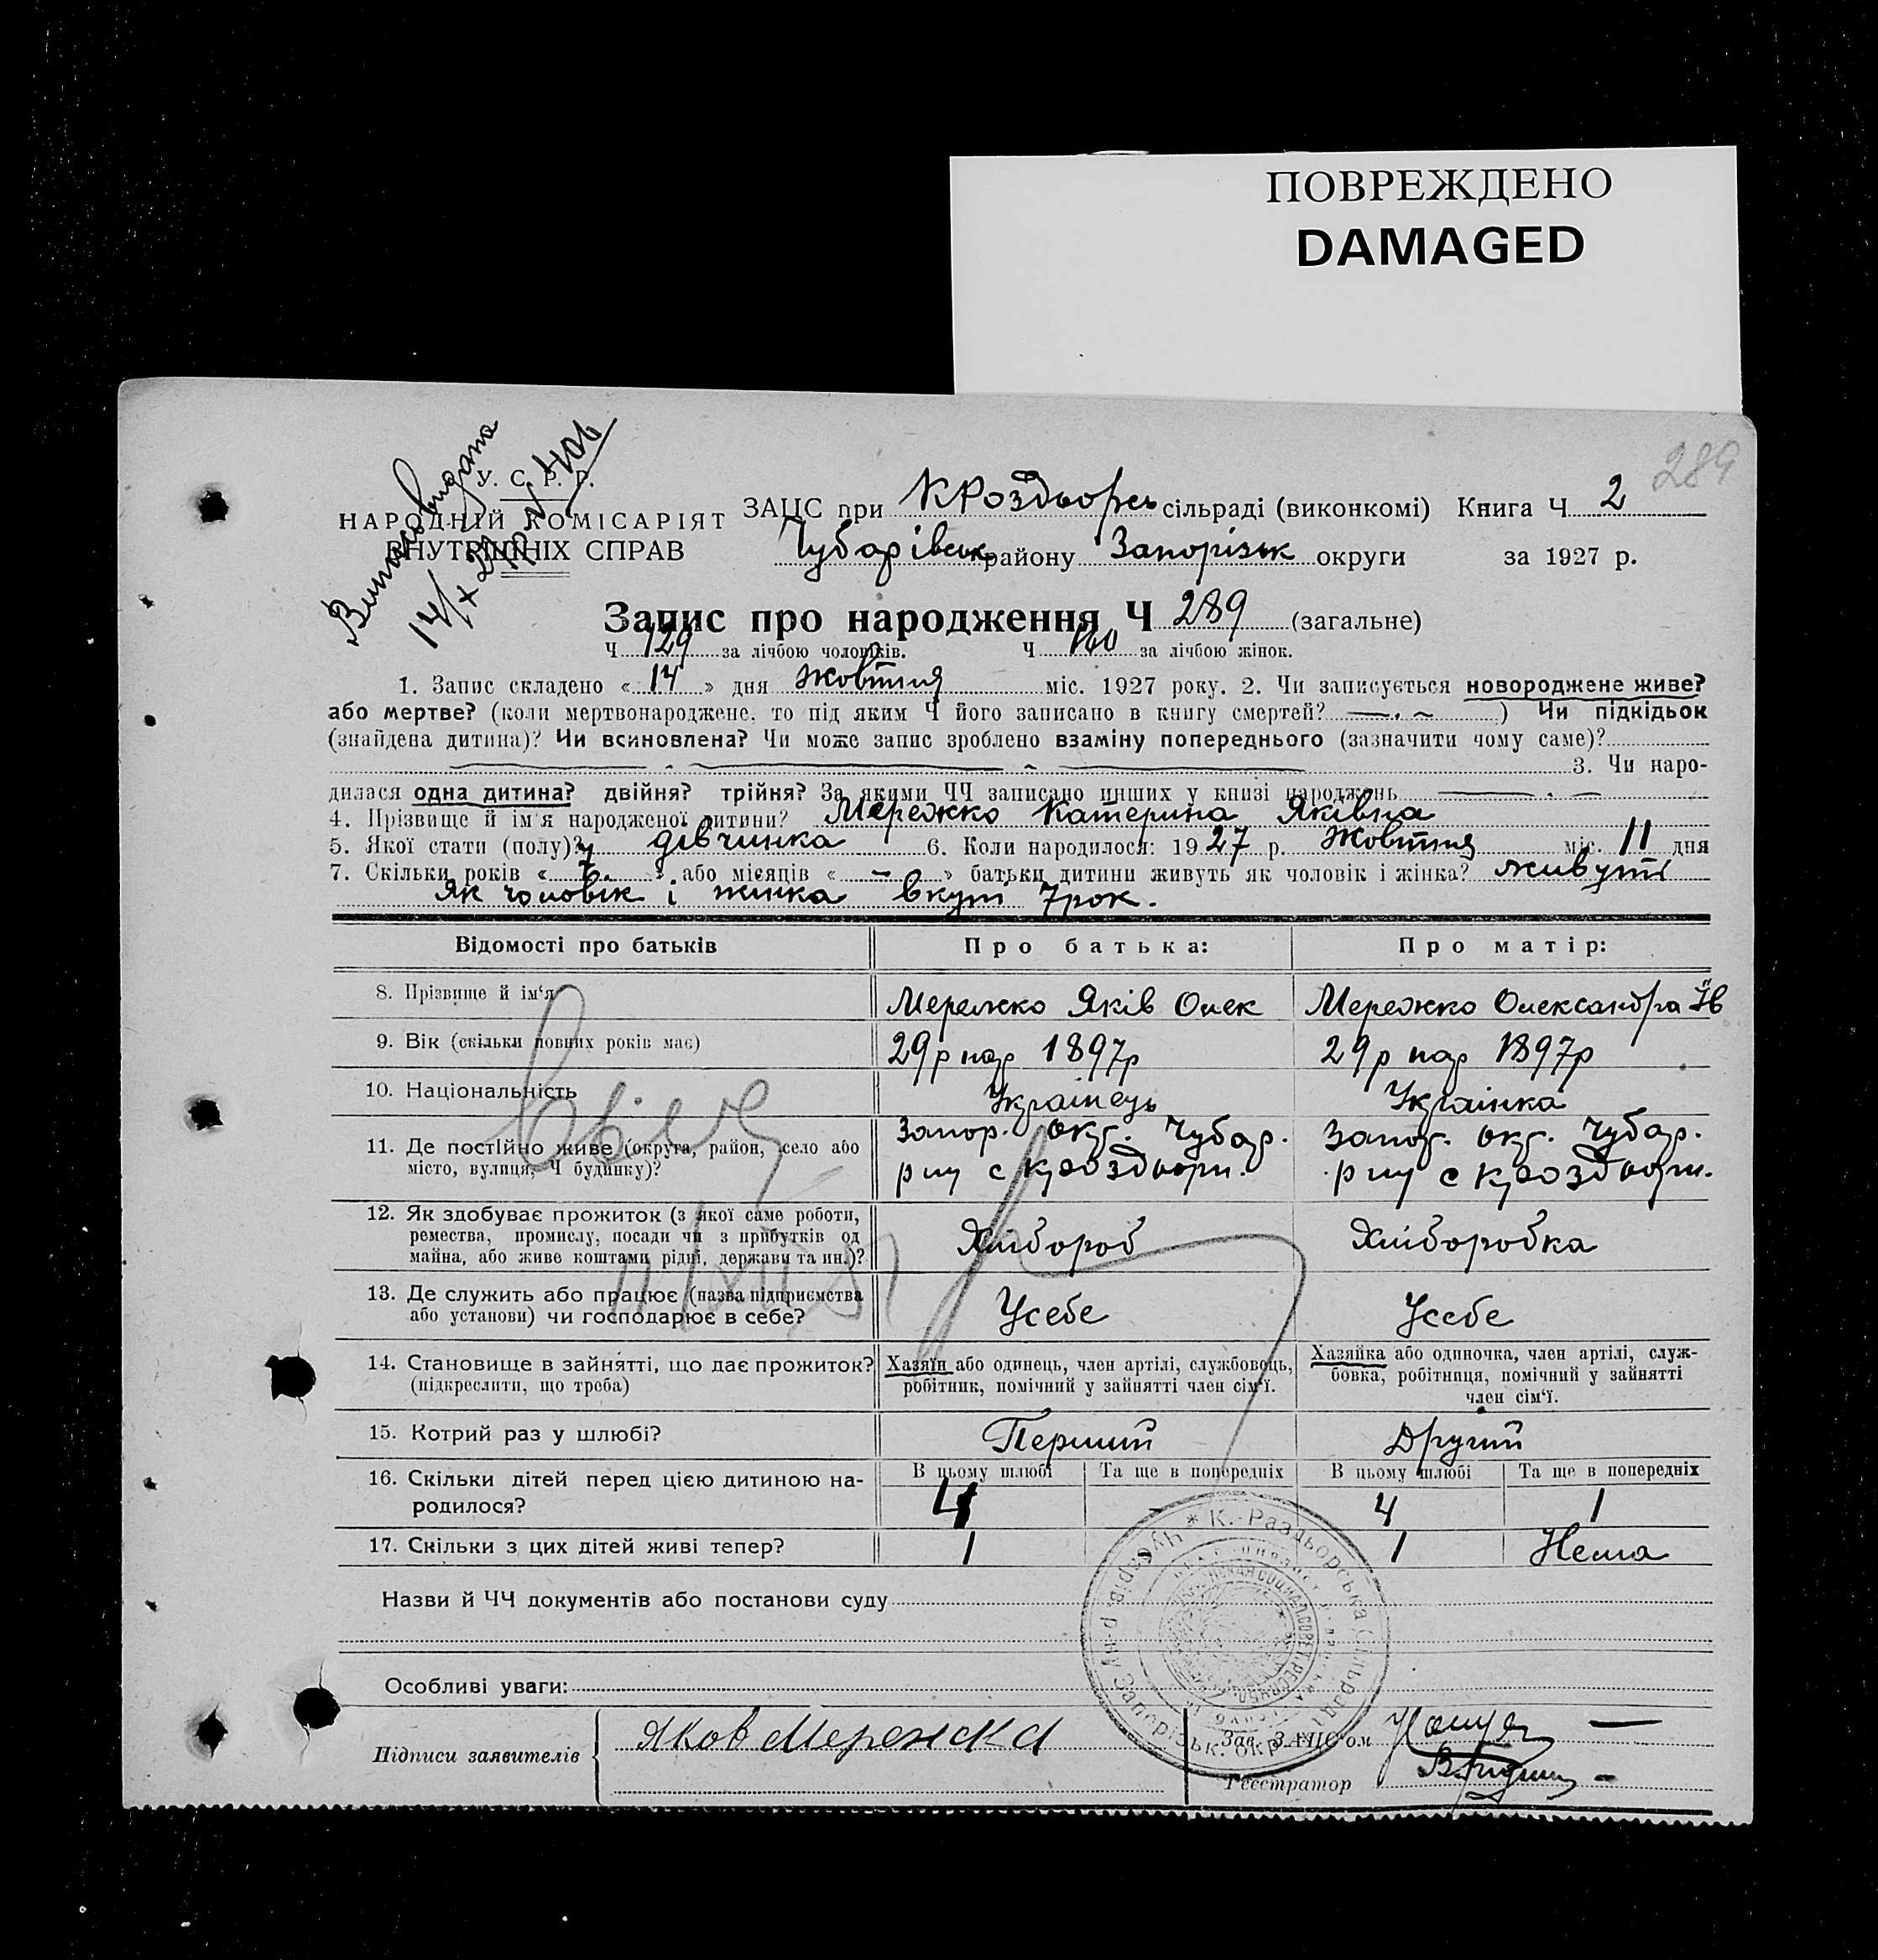 ПОВРЕЖДЕНО
DAMAGED
289
У. С. Р. Р.
НАРОДНІЙ КОМІСАРІЯТ
ВНУТРІШНІХ СПРАВ
ЗАЦС при КРоздорсь сільраді (виконкомі) Книга Ч 2
Чубарівськ району Запорізьк округи за 1927 р.
Запис про народження Ч 289 (загальне)
Ч 129 за лічбою чоловіків. Ч 160 за лічбою жінок.
1. Запис складено « 14 » дня жовтня міс. 1927 року. 2. Чи записується новороджене живе?
або мертве? (коли мертвонароджене, то під яким Ч його записано в книгу смертей? ) Чи підкідьок
(знайдена дитина)? Чи всиновлена? Чи може запис зроблено взаміну попереднього (зазначити чому саме)?
3. Чи наро-
дилася одна дитина? двійня? трійня? За якими ЧЧ записано инших у книзі народжень
4. Прізвище й ім'я народженої дитини? Мережко Катерина Яківна
5. Якої стати (полу)? дівчинка 6. Коли народилося: 1927 р. Жовтня міс. 11 дня
7. Скільки років « 7. » або місяців « – » батьки дитини живуть як чоловік і жінка? живуть
як чоловік і жинка вкупі 7рок.
Відомості про батьків Про батька: Про матір:
8. Прізвище й ім'я Мережко Яків Олек Мережко Олександра Ів
9. Вік (скільки повних років має) 29р нар 1897р 29р нар 1897р
10. Національність Українець Українка
11. Де постійно живе (округа, район, село або
місто, вулиця, Ч будинку)?
Запор. окг. Чубар. Запор. окг. Чубар.
12. Як здобуває прожиток (з якої саме роботи,
ремества, промислу, посади чи з прибутків од
майна, або живе коштами рідні, держави та ин.)?
Хлібороб Хліборобка
13. Де служить або працює (назва підприємства
або установи) чи господарює в себе?
Усебе Усебе
14. Становище в зайнятті, що дає прожиток?
(підкреслити, що треба)
Хазяїн або одинець, член артілі, службовець,
робітник, помічний у зайнятті член сім'ї.
Хазяйка або одиночка, член артілі, служ-
бовка, робітниця, помічний у зайнятті
член сім'ї.
15. Котрий раз у шлюбі? Перший Другий
16. Скільки дітей перед цією дитиною на-
родилося?
В цьому шлюбі Та ще в попередніх В цьому шлюбі Та ще в попередніх
4 4 1
17. Скільки з цих дітей живі тепер? 1 1 Нема
Назви й ЧЧ документів або постанови суду
Особливі уваги:
К.-Раздорська Сільрада * Чубарів. р-н Запорізьк. окр.
Підписи заявителів Яков Мережка
Зав. ЗАЦС'ом
Реєстратор